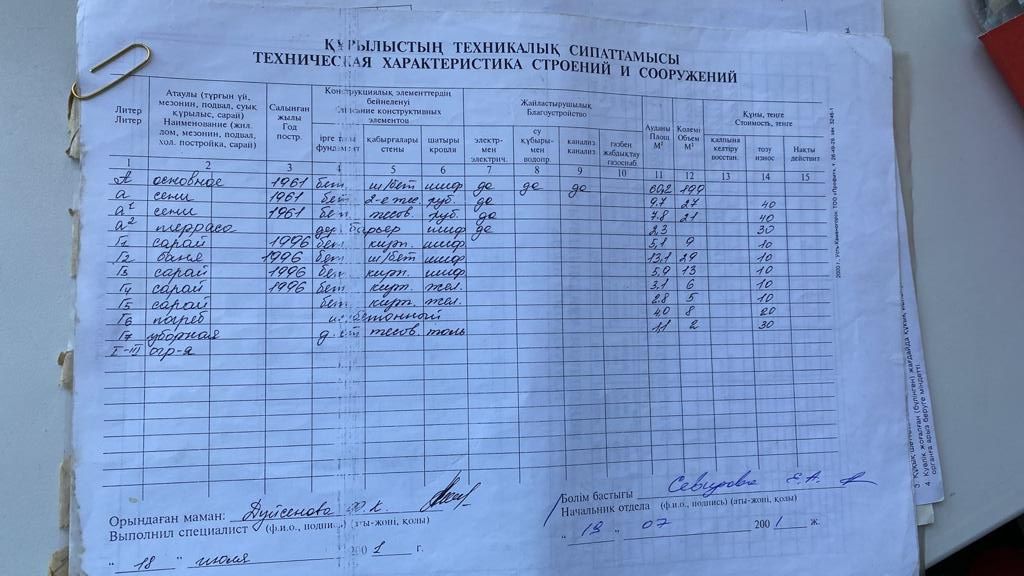 ҚҰРЫЛЫСТЫҢ ТЕХНИКАЛЫҚ СИПАТТАМАСЫ
ТЕХНИЧЕСКАЯ ХАРАКТЕРИСТИКА СТРОЕНИЙ И СООРУЖЕНИЙ
Литер Литер | Атаулы (тұрғын үй, мезонин, подвал, суық құрылыс, сарай) Наименование (жил. дом, мезонин, подвал, хол. постройка, сарай) | Салынған жылы Год постр. | Конструкциялық элементтердің бейнеленуі Описание конструктивных элементов | Жайластырушылық Благоустройство | Ауданы Площ М² | Көлемі Объем М³ | Құны, теңге Стоимость, тенге
қабырғалары стены | шатыры кровля | электр-мен электрич. | су құбыры-мен водопр. | канализ канализ. | газбен жабдықтау газоснаб | қалпына келтіру восстан. | тозу износ | Нақты действит
1 2 3 4 5 6 7 8 9 10 11 12 13 14 15
А основное 1961 бет. ш/бет шиф да да да 60,2 199
а сени 1961 бет. руб. да 9.7 27 40
а¹ сени 1961 бет. тесов. руб. да 7.8 21 40
а² терраса дер. барьер шиф да 2,3 30
Г1 сарай 1996 бет. кирп. шиф. 5,1 9 10
Г2 баня 1996 бет. ш/бет шиф 13,1 29 10
Г3 сарай 1996 бет. кирп. шиф. 5,9 13 10
Г4 сарай 1996 бет. кирп. жел. 3.1 6 10
Г5 сарай бет. кирп. жел. 2.8 5 10
Г6 погреб 4,0 8 20
Г7 уборная тесов толь 1,1 2 30
I-III огр-я
Орындаған маман: Дуйсенова
Выполнил специалист (ф.и.о., подпись) (аты-жөні, қолы)
" 18 " июля 200 1 г.
Бөлім бастығы Е.А.
Начальник отдела (ф.и.о., подпись) (аты-жөні, қолы)
" 19 " 07 200 1 ж.